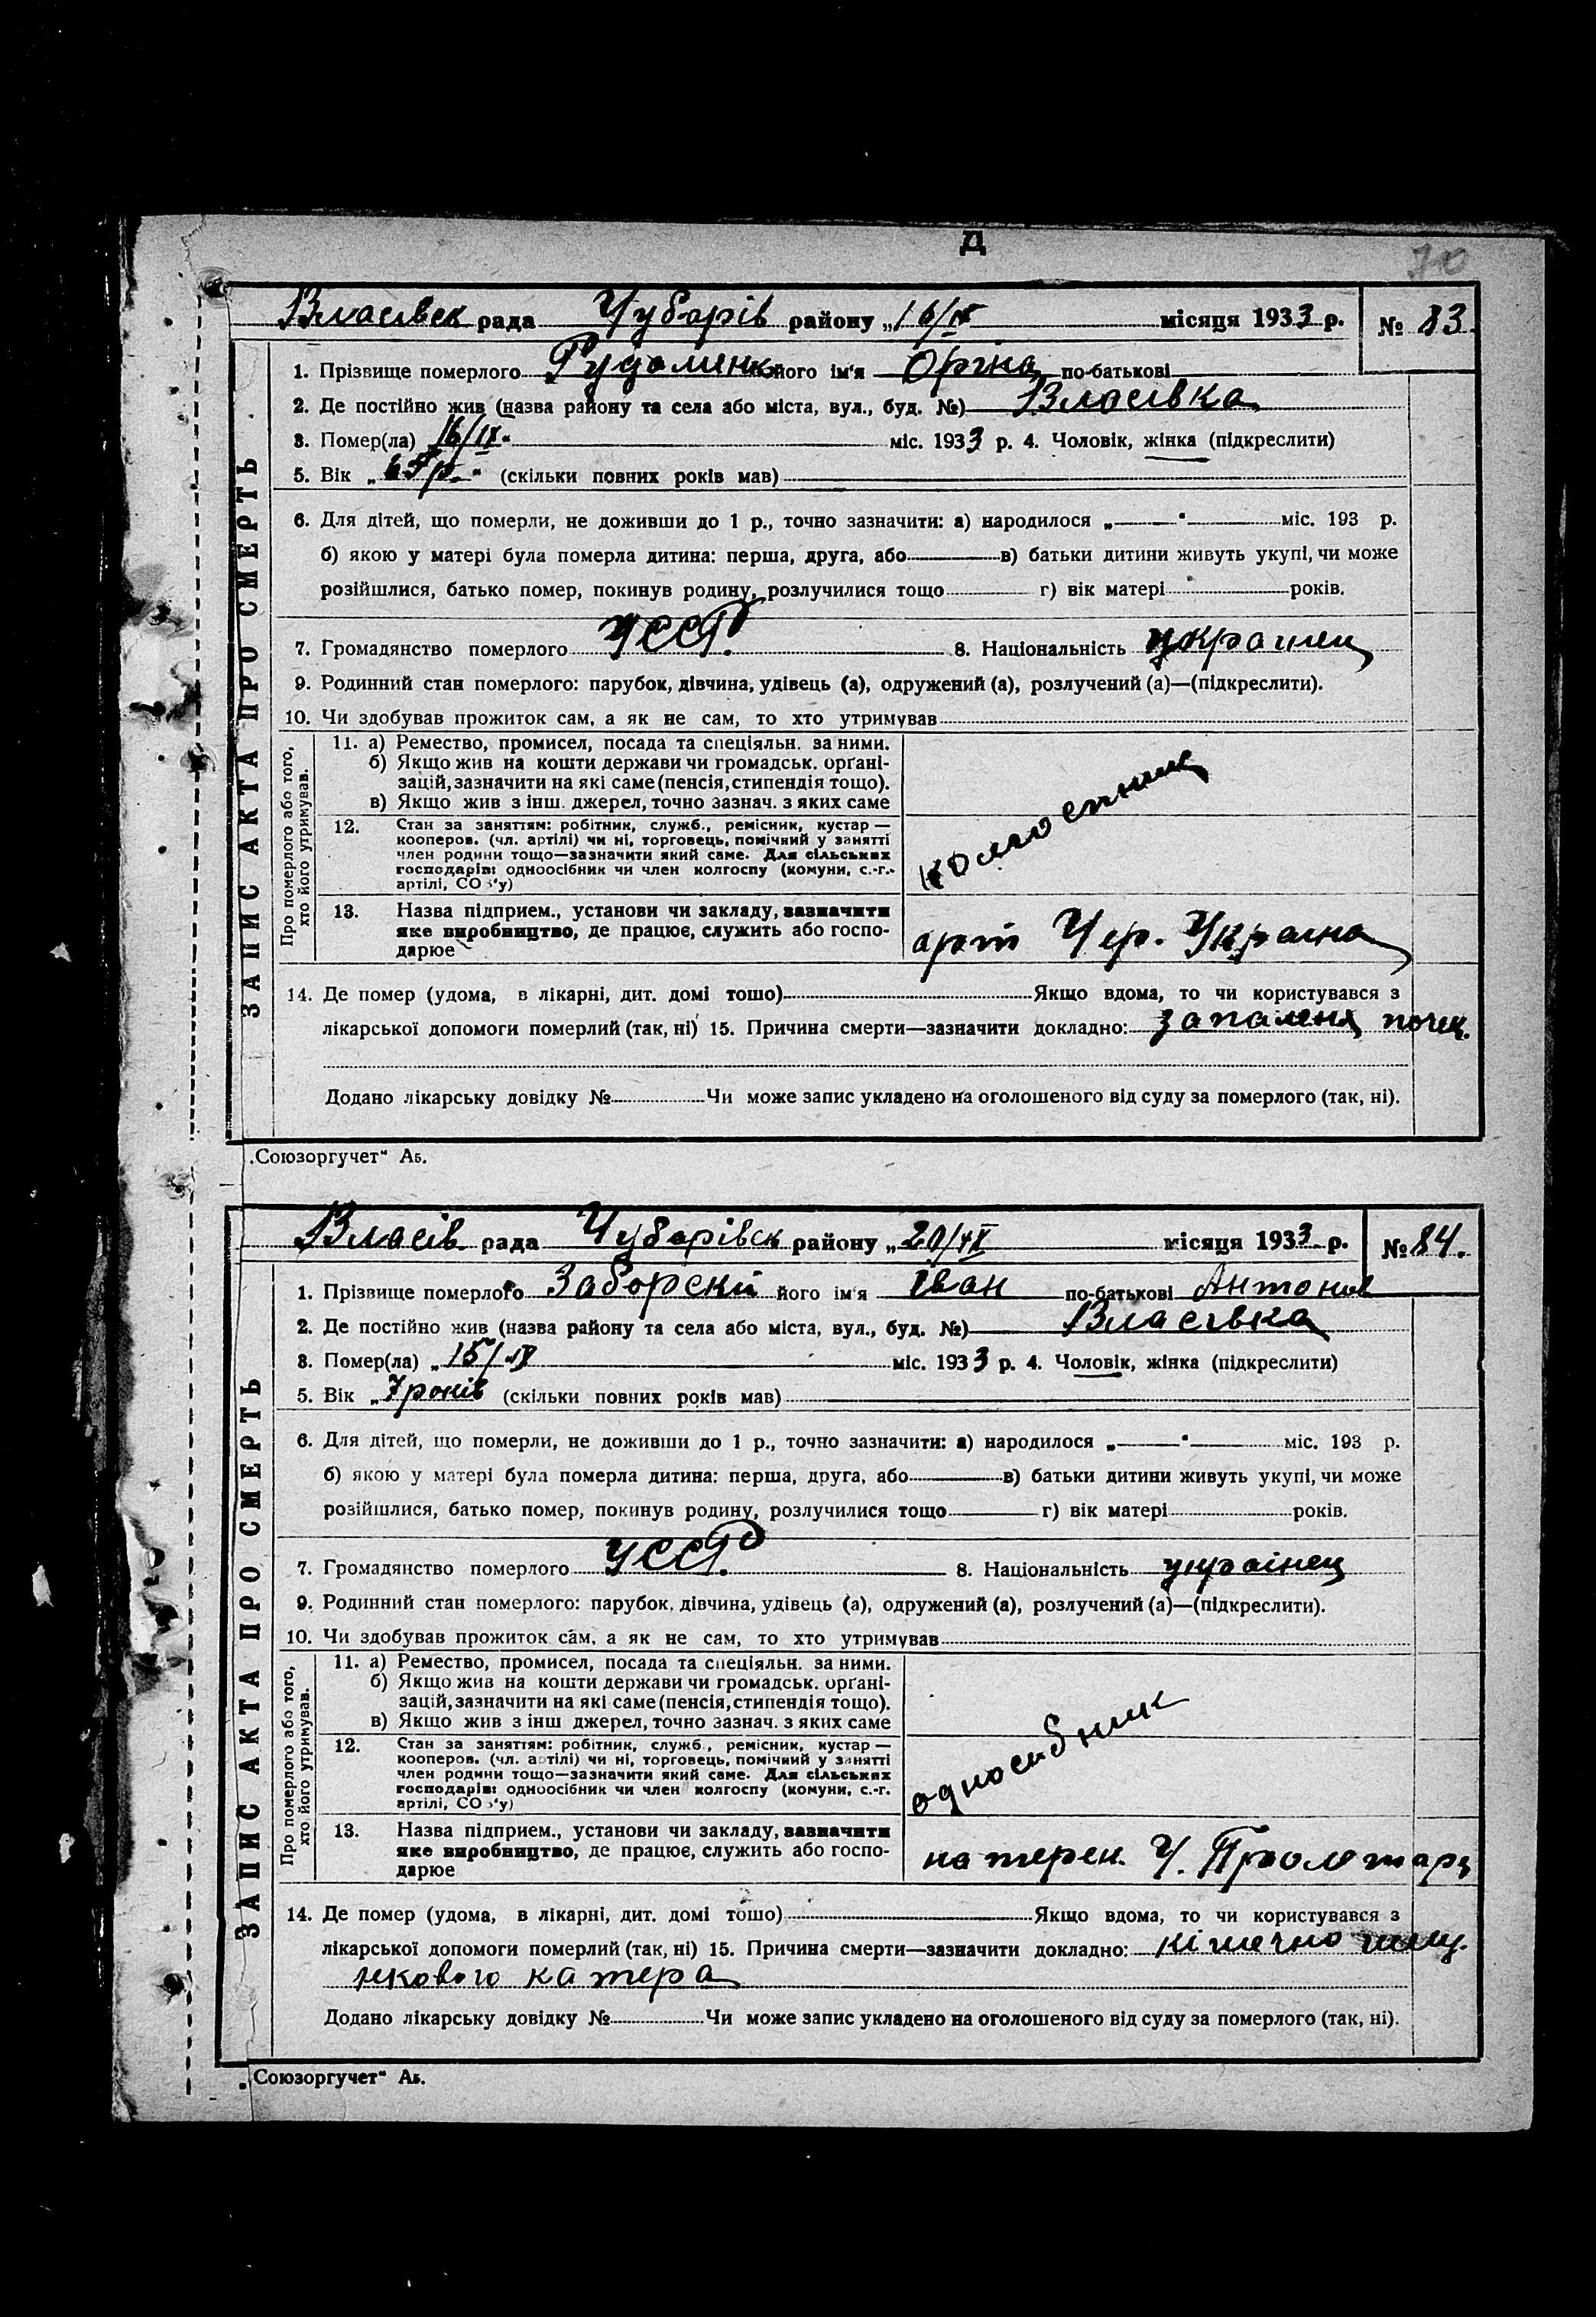 Д
70
Власівск рада Чубарів району „16/IX місяця 1933 р. № 83
ЗАПИС АКТА ПРО СМЕРТЬ
1. Прізвище померлого його ім'я Оріна по-батькові
2. Де постійно жив (назва району та села або міста, вул., буд. №) Власівка
3. Помер(ла) 16/IX. міс. 1933 р. 4. Чоловік, жінка (підкреслити)
5. Вік „65 р." (скільки повних років мав)
6. Для дітей, що померли, не доживши до 1 р., точно зазначити: а) народилося „ " міс. 193 р.
б) якою у матері була померла дитина: перша, друга, або в) батьки дитини живуть укупі, чи може
розійшлися, батько помер, покинув родину, розлучилися тощо г) вік матері років.
7. Громадянство померлого УССР. 8. Національність
9. Родинний стан померлого: парубок, дівчина, удівець (а), одружений (а), розлучений (а)—(підкреслити).
10. Чи здобував прожиток сам, а як не сам, то хто утримував
Про померлого або того, хто його утримував.
11. а) Ремество, промисел, посада та спеціяльн. за ними.
б) Якщо жив на кошти держави чи громадськ. орґані-
зацій, зазначити на які саме (пенсія, стипендія тощо).
в) Якщо жив з інш. джерел, точно зазнач. з яких саме
12. Стан за заняттям: робітник, служб., ремісник, кустар —
кооперов. (чл. артілі) чи ні, торговець, помічний у занятті
член родини тощо—зазначити який саме. Для сільських
господарів: одноосібник чи член колгоспу (комуни, с.-г.
артілі, СОЗ'у)
колгоспник
13. Назва підприєм., установи чи закладу, зазначити
яке виробництво, де працює, служить або госпо-
дарює
арт Чер. Україна
14. Де помер (удома, в лікарні, дит. домі тошо) Якщо вдома, то чи користувався з
лікарської допомоги померлий (так, ні) 15. Причина смерти—зазначити докладно: запаленя почец.
Додано лікарську довідку № Чи може запис укладено на оголошеного від суду за померлого (так, ні).
„Союзоргучет" Аб.
Власів. рада Чубарівск району „20/IX місяця 1933 р. № 84.
ЗАПИС АКТА ПРО СМЕРТЬ
1. Прізвище померлого Заборскій його ім'я Іван по-батькові Антонов
2. Де постійно жив (назва району та села або міста, вул., буд. №) Власівка
3. Помер(ла) „15/IX міс. 1933 р. 4. Чоловік, жінка (підкреслити)
5. Вік „7 років (скільки повних років мав)
6. Для дітей, що померли, не доживши до 1 р., точно зазначити: а) народилося „ " міс. 193 р.
б) якою у матері була померла дитина: перша, друга, або в) батьки дитини живуть укупі, чи може
розійшлися, батько помер, покинув родину, розлучилися тощо г) вік матері років.
7. Громадянство померлого УССР. 8. Національність українец
9. Родинний стан померлого: парубок, дівчина, удівець (а), одружений (а), розлучений (а)—(підкреслити).
10. Чи здобував прожиток сам, а як не сам, то хто утримував
Про померлого або того, хто його утримував.
11. а) Ремество, промисел, посада та спеціяльн. за ними.
б) Якщо жив на кошти держави чи громадськ. орґані-
зацій, зазначити на які саме (пенсія, стипендія тощо).
в) Якщо жив з інш джерел, точно зазнач. з яких саме
12. Стан за заняттям: робітник, служб., ремісник, кустар —
кооперов. (чл. артілі) чи ні, торговець, помічний у занятті
член родини тощо—зазначити який саме. Для сільських
господарів: одноосібник чи член колгоспу (комуни, с.-г.
артілі, СОЗ'у)
односибник
13. Назва підприєм., установи чи закладу, зазначити
яке виробництво, де працює, служить або госпо-
дарює
на терен. Ч.
14. Де помер (удома, в лікарні, дит. домі тошо) Якщо вдома, то чи користувався з
лікарської допомоги померлий (так, ні) 15. Причина смерти—зазначити докладно: кішечно
катера
Додано лікарську довідку № Чи може запис укладено на оголошеного від суду за померлого (так, ні).
„Союзоргучет" Аб.